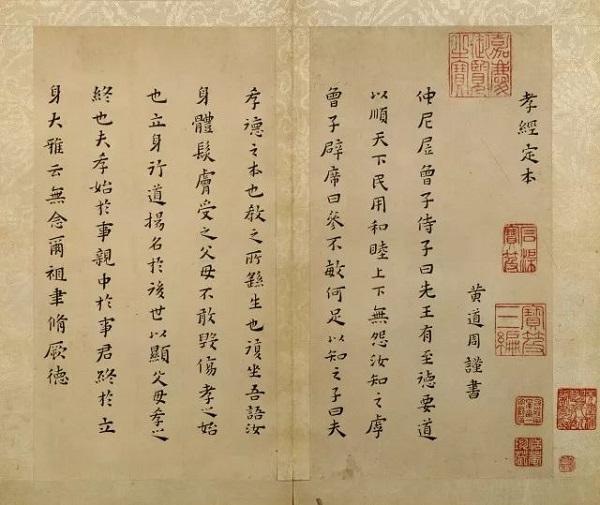 孝經定本
黃道周謹書
仲尼凥曾子侍子曰先王有至德要道
以順天下民用和睦上下無怨汝知之虖
曾子辟席曰參不敏何足以知之子曰夫
孝德之本也教之所繇生也復坐吾語汝
身體髮膚受之父母不敢毀傷孝之始
也立身行道揚名於後世以顯父母孝之
終也夫孝始於事親中於事君終於立
身大雅云無念爾祖聿脩厥德
嘉慶御覽之寶
石渠寶笈
寶笈三編